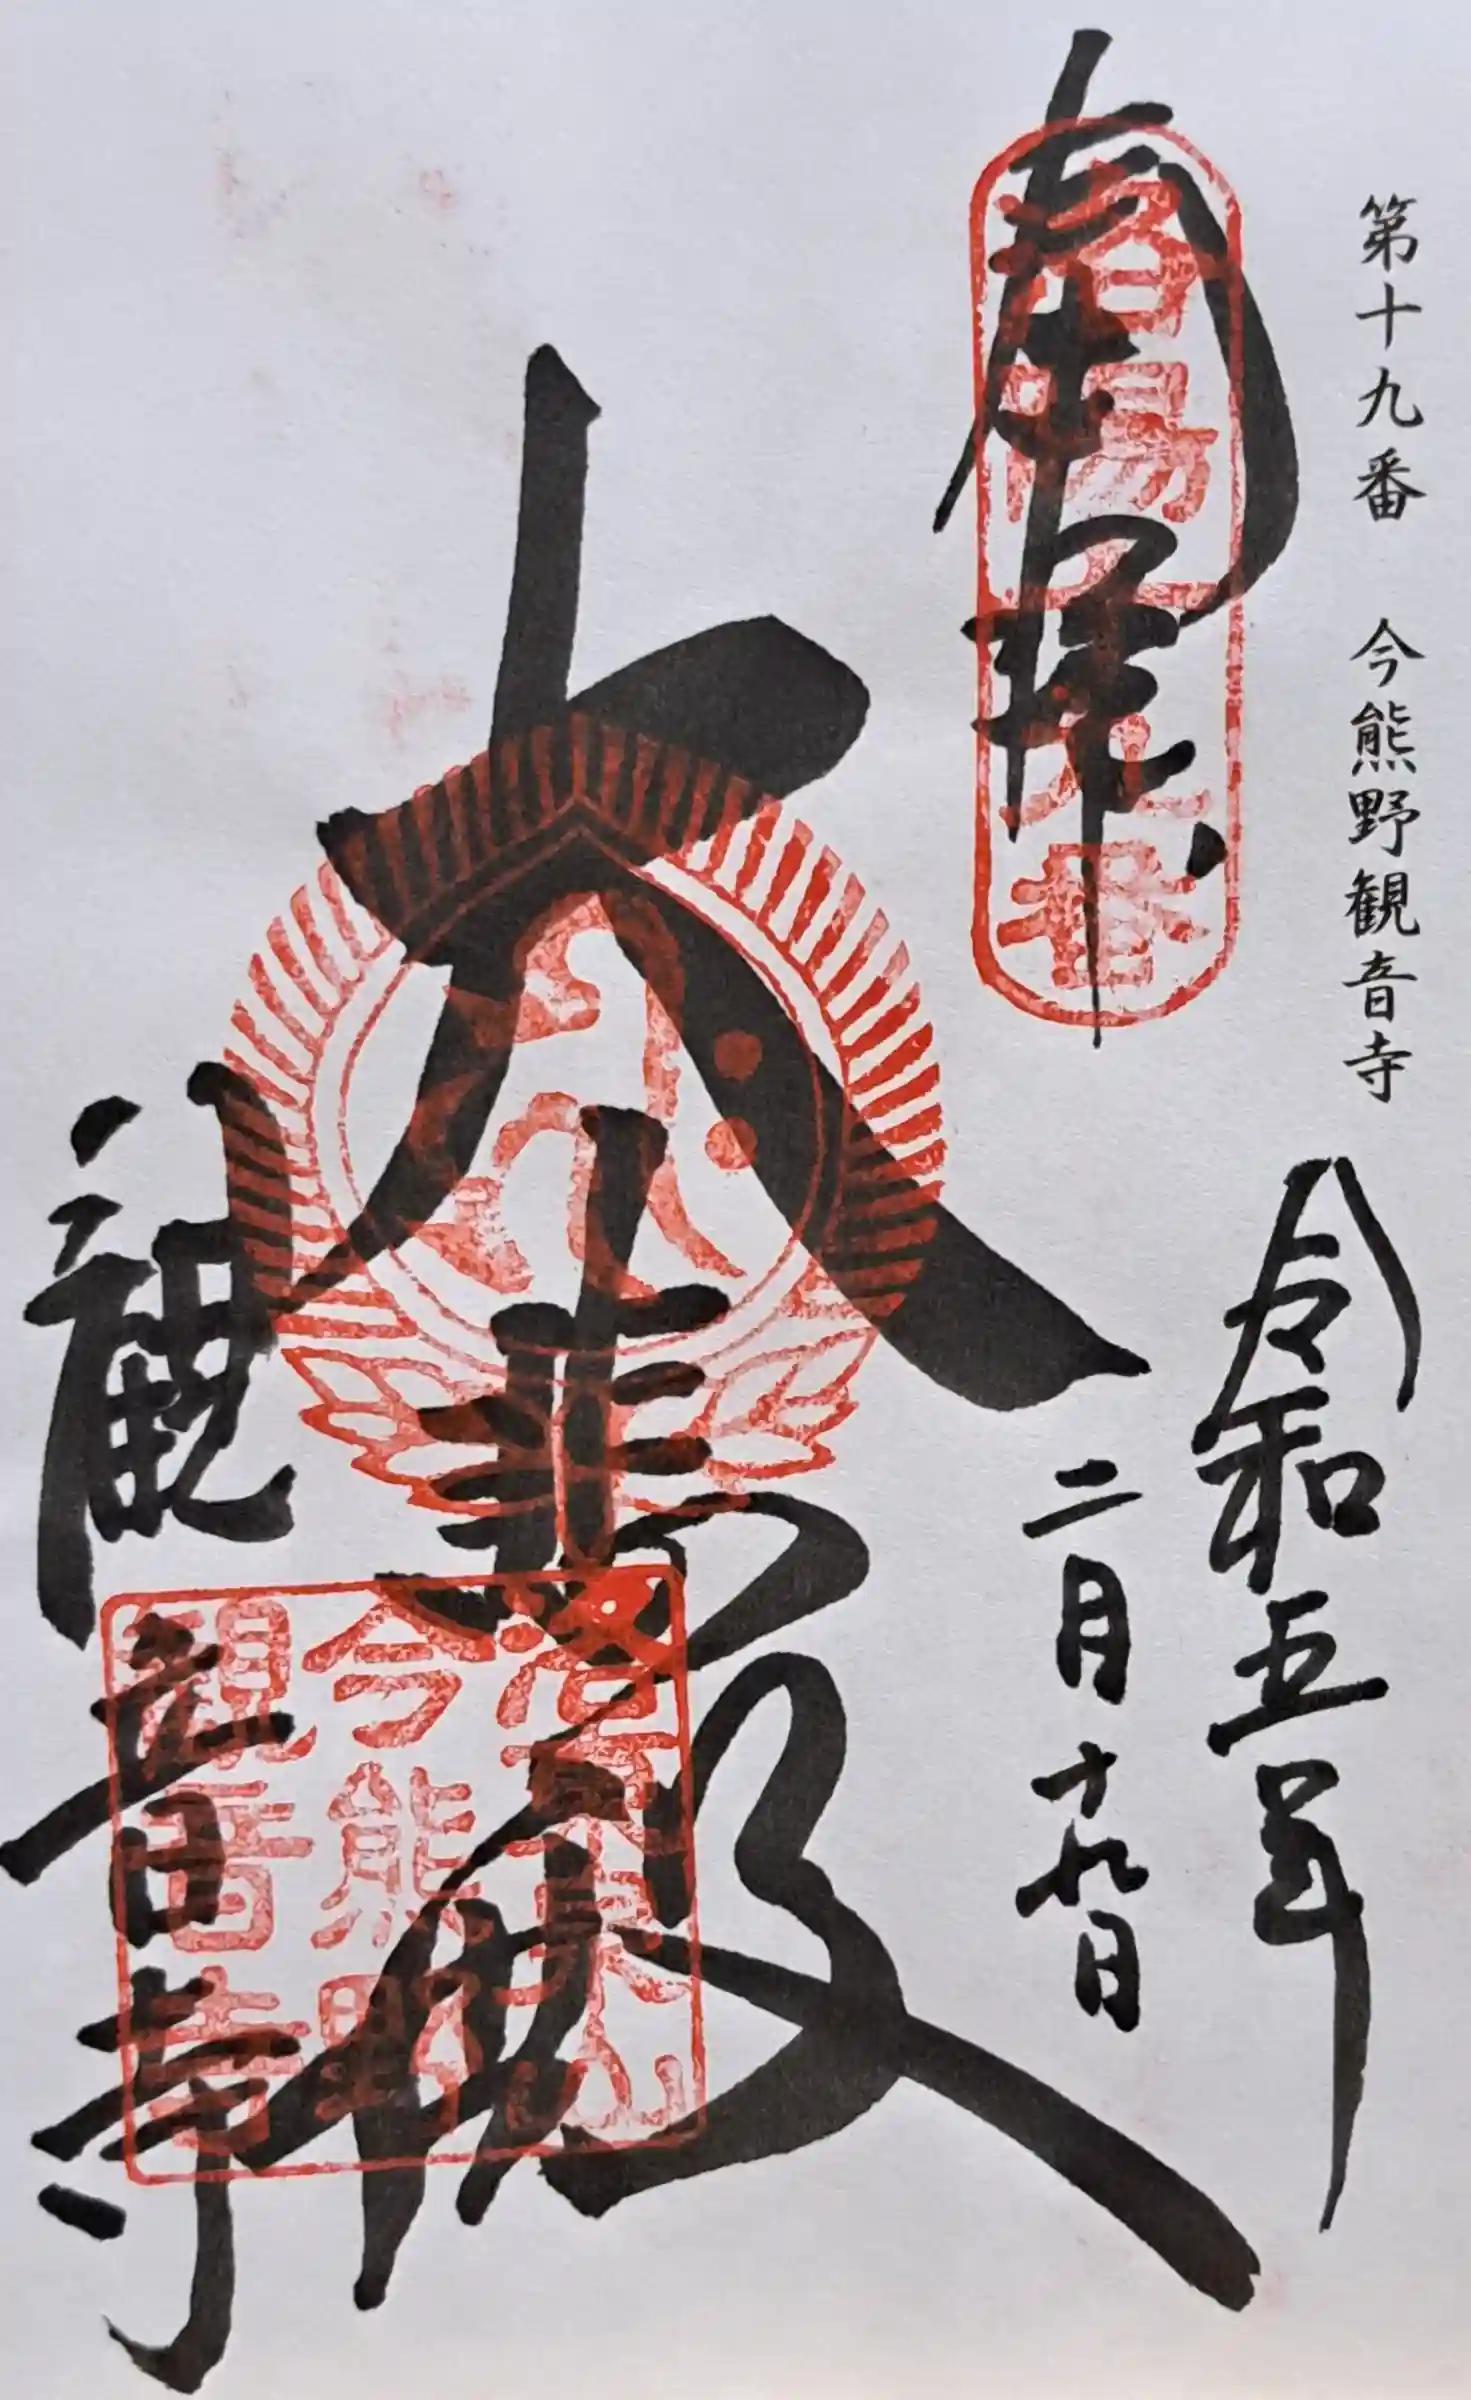 第十九番 今熊野観音寺
令和五年
二月十九日
奉拝
洛陽十九番
大悲殿
今熊野
観音寺
観音寺